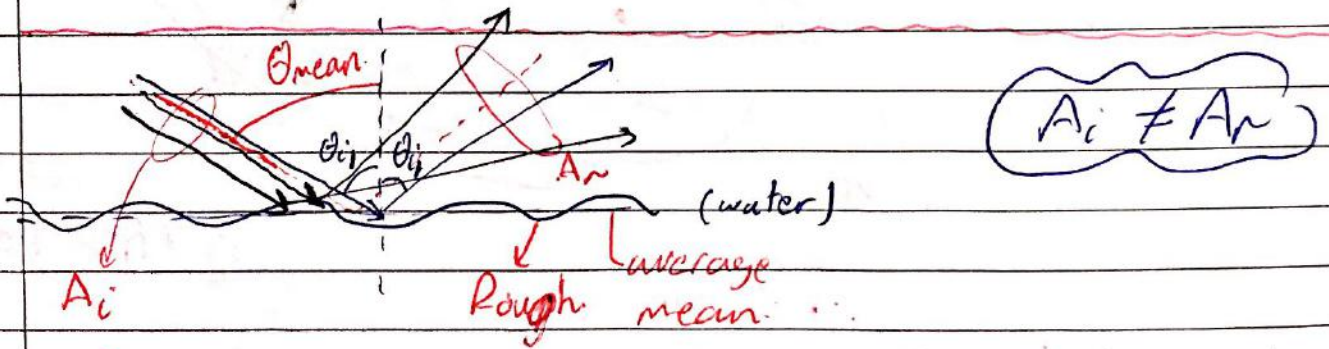 θmean.
Ai ≠ Ar
θi, θi,
Ar
(water)
Ai
Rough.
average
mean.